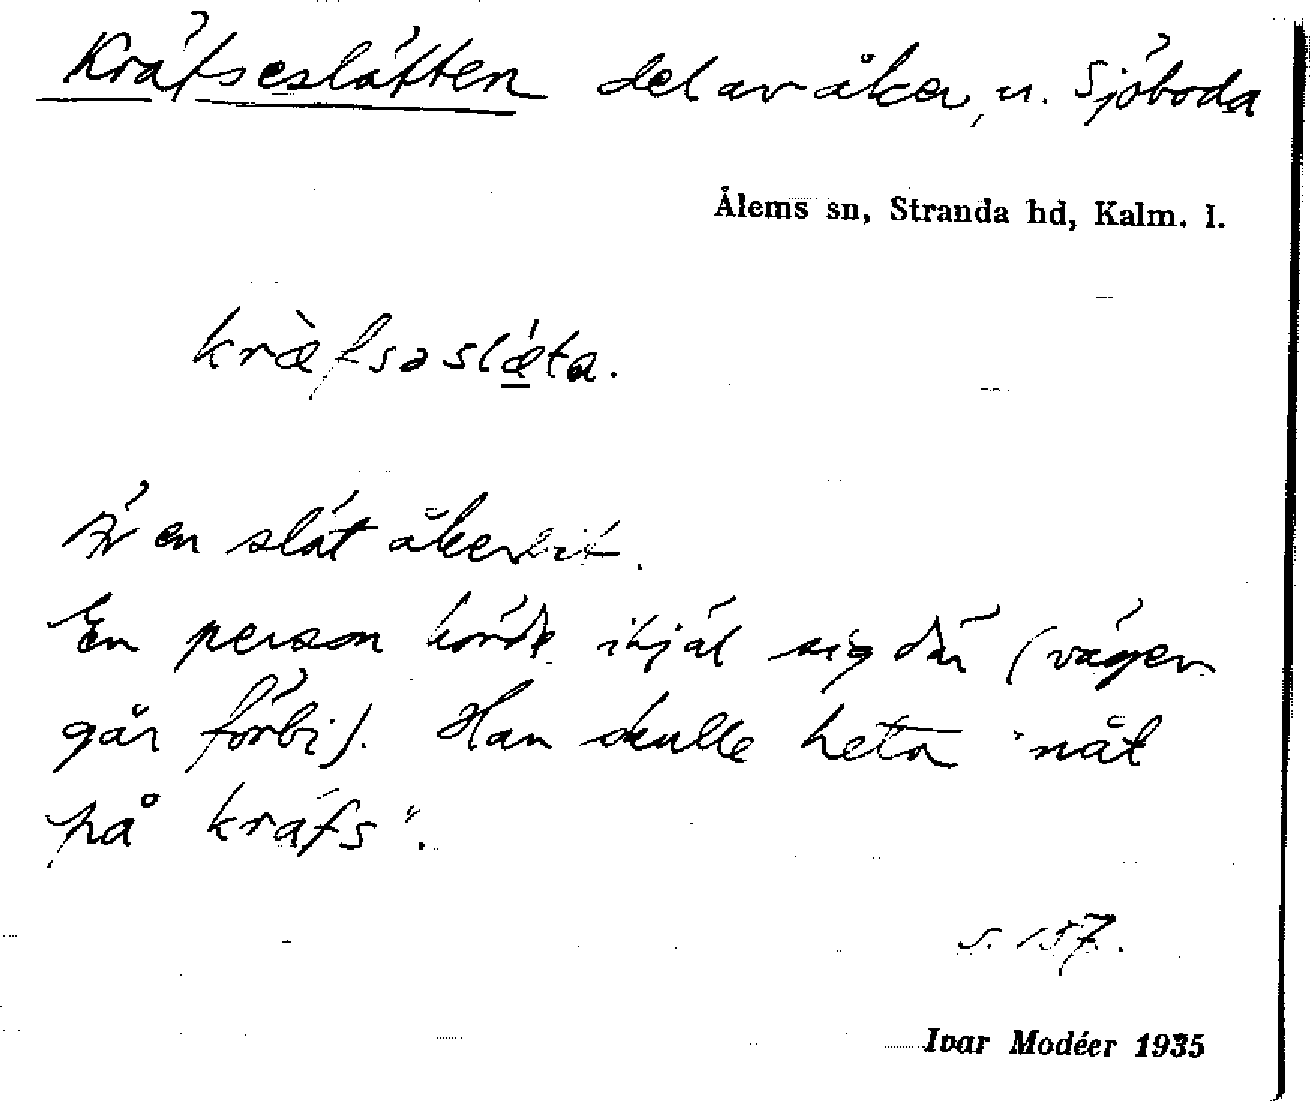 Kräfseslätten del av åker, u. Sjöboda
Ålems sn, Stranda hd, Kalm. l.
kræ̀fsəslǽta.
Är en slät åkerbit.
En person körde ihjäl sig där (vägen
går förbi). Han skulle heta "nåt
på kräfs".
s. 157.
Ivar Modéer 1935